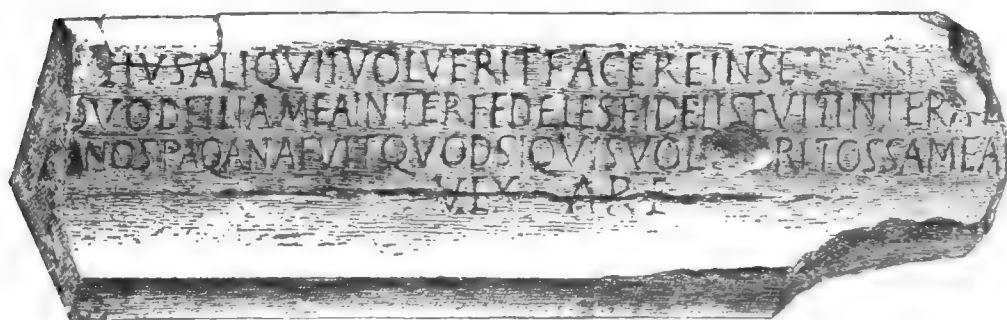 HVSALIQVITVOLVERITFACEREINSE
QVODFILIAMEAINTERFEDELESFIDELISFVITINTER
ANOSPAGANAFVITQVODSIQVISVOL RITOSSAMEA
VEX ARE